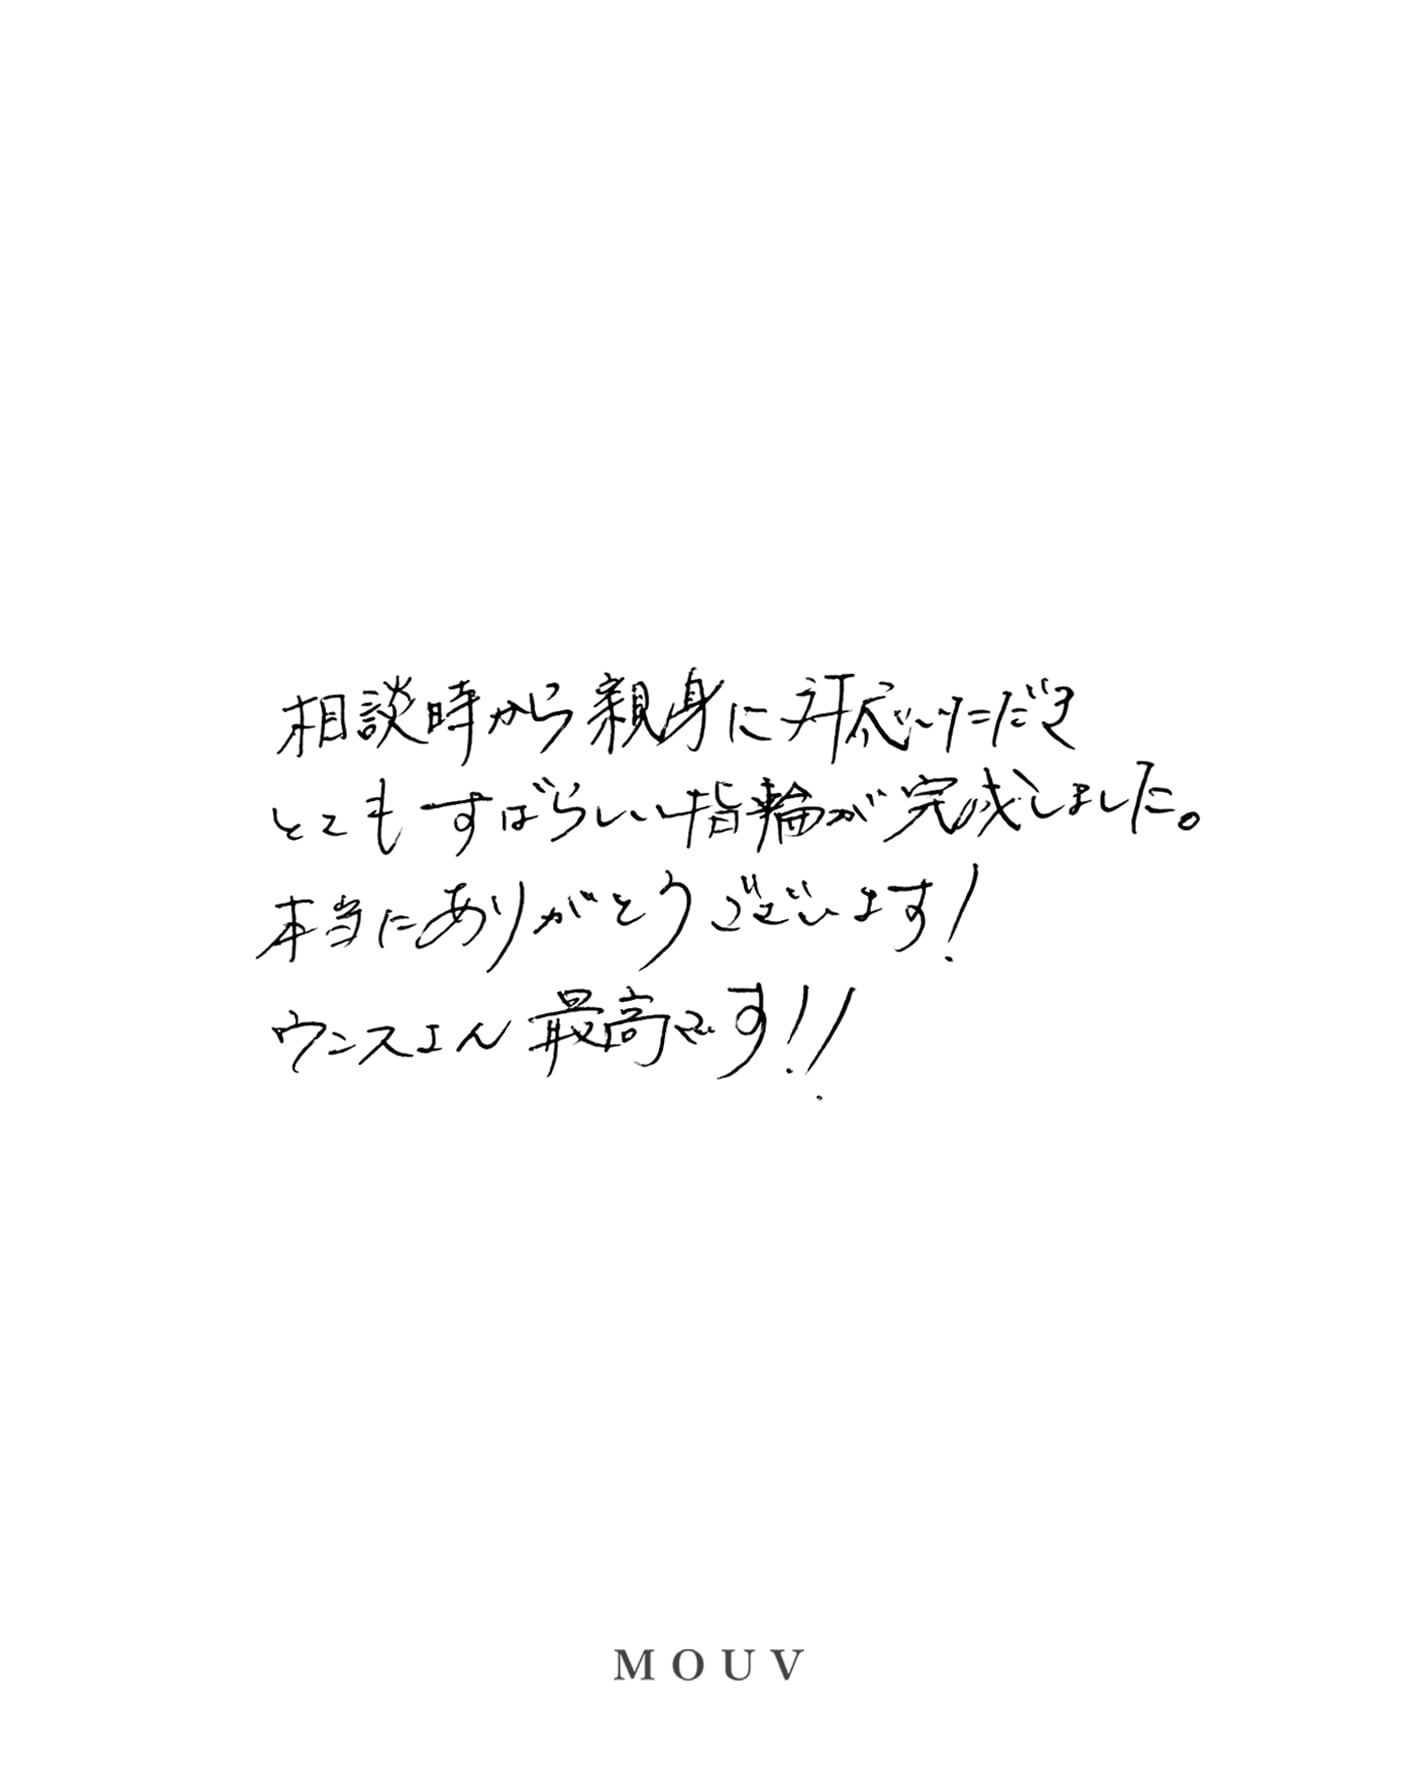 相談時から親身に対応いただき
とてもすばらしい指輪が完成しました。
本当にありがとうございます!
最高です!!
MOUV